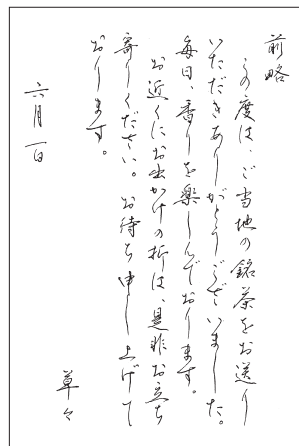 前略
この度は、ご当地の銘茶をお送り
いただきありがとうございました。
毎日、香りを楽しんでおります。
お近くにお出かけの折は、是非お立ち
寄りください。お待ち申し上げて
おります。
草々
六月一日